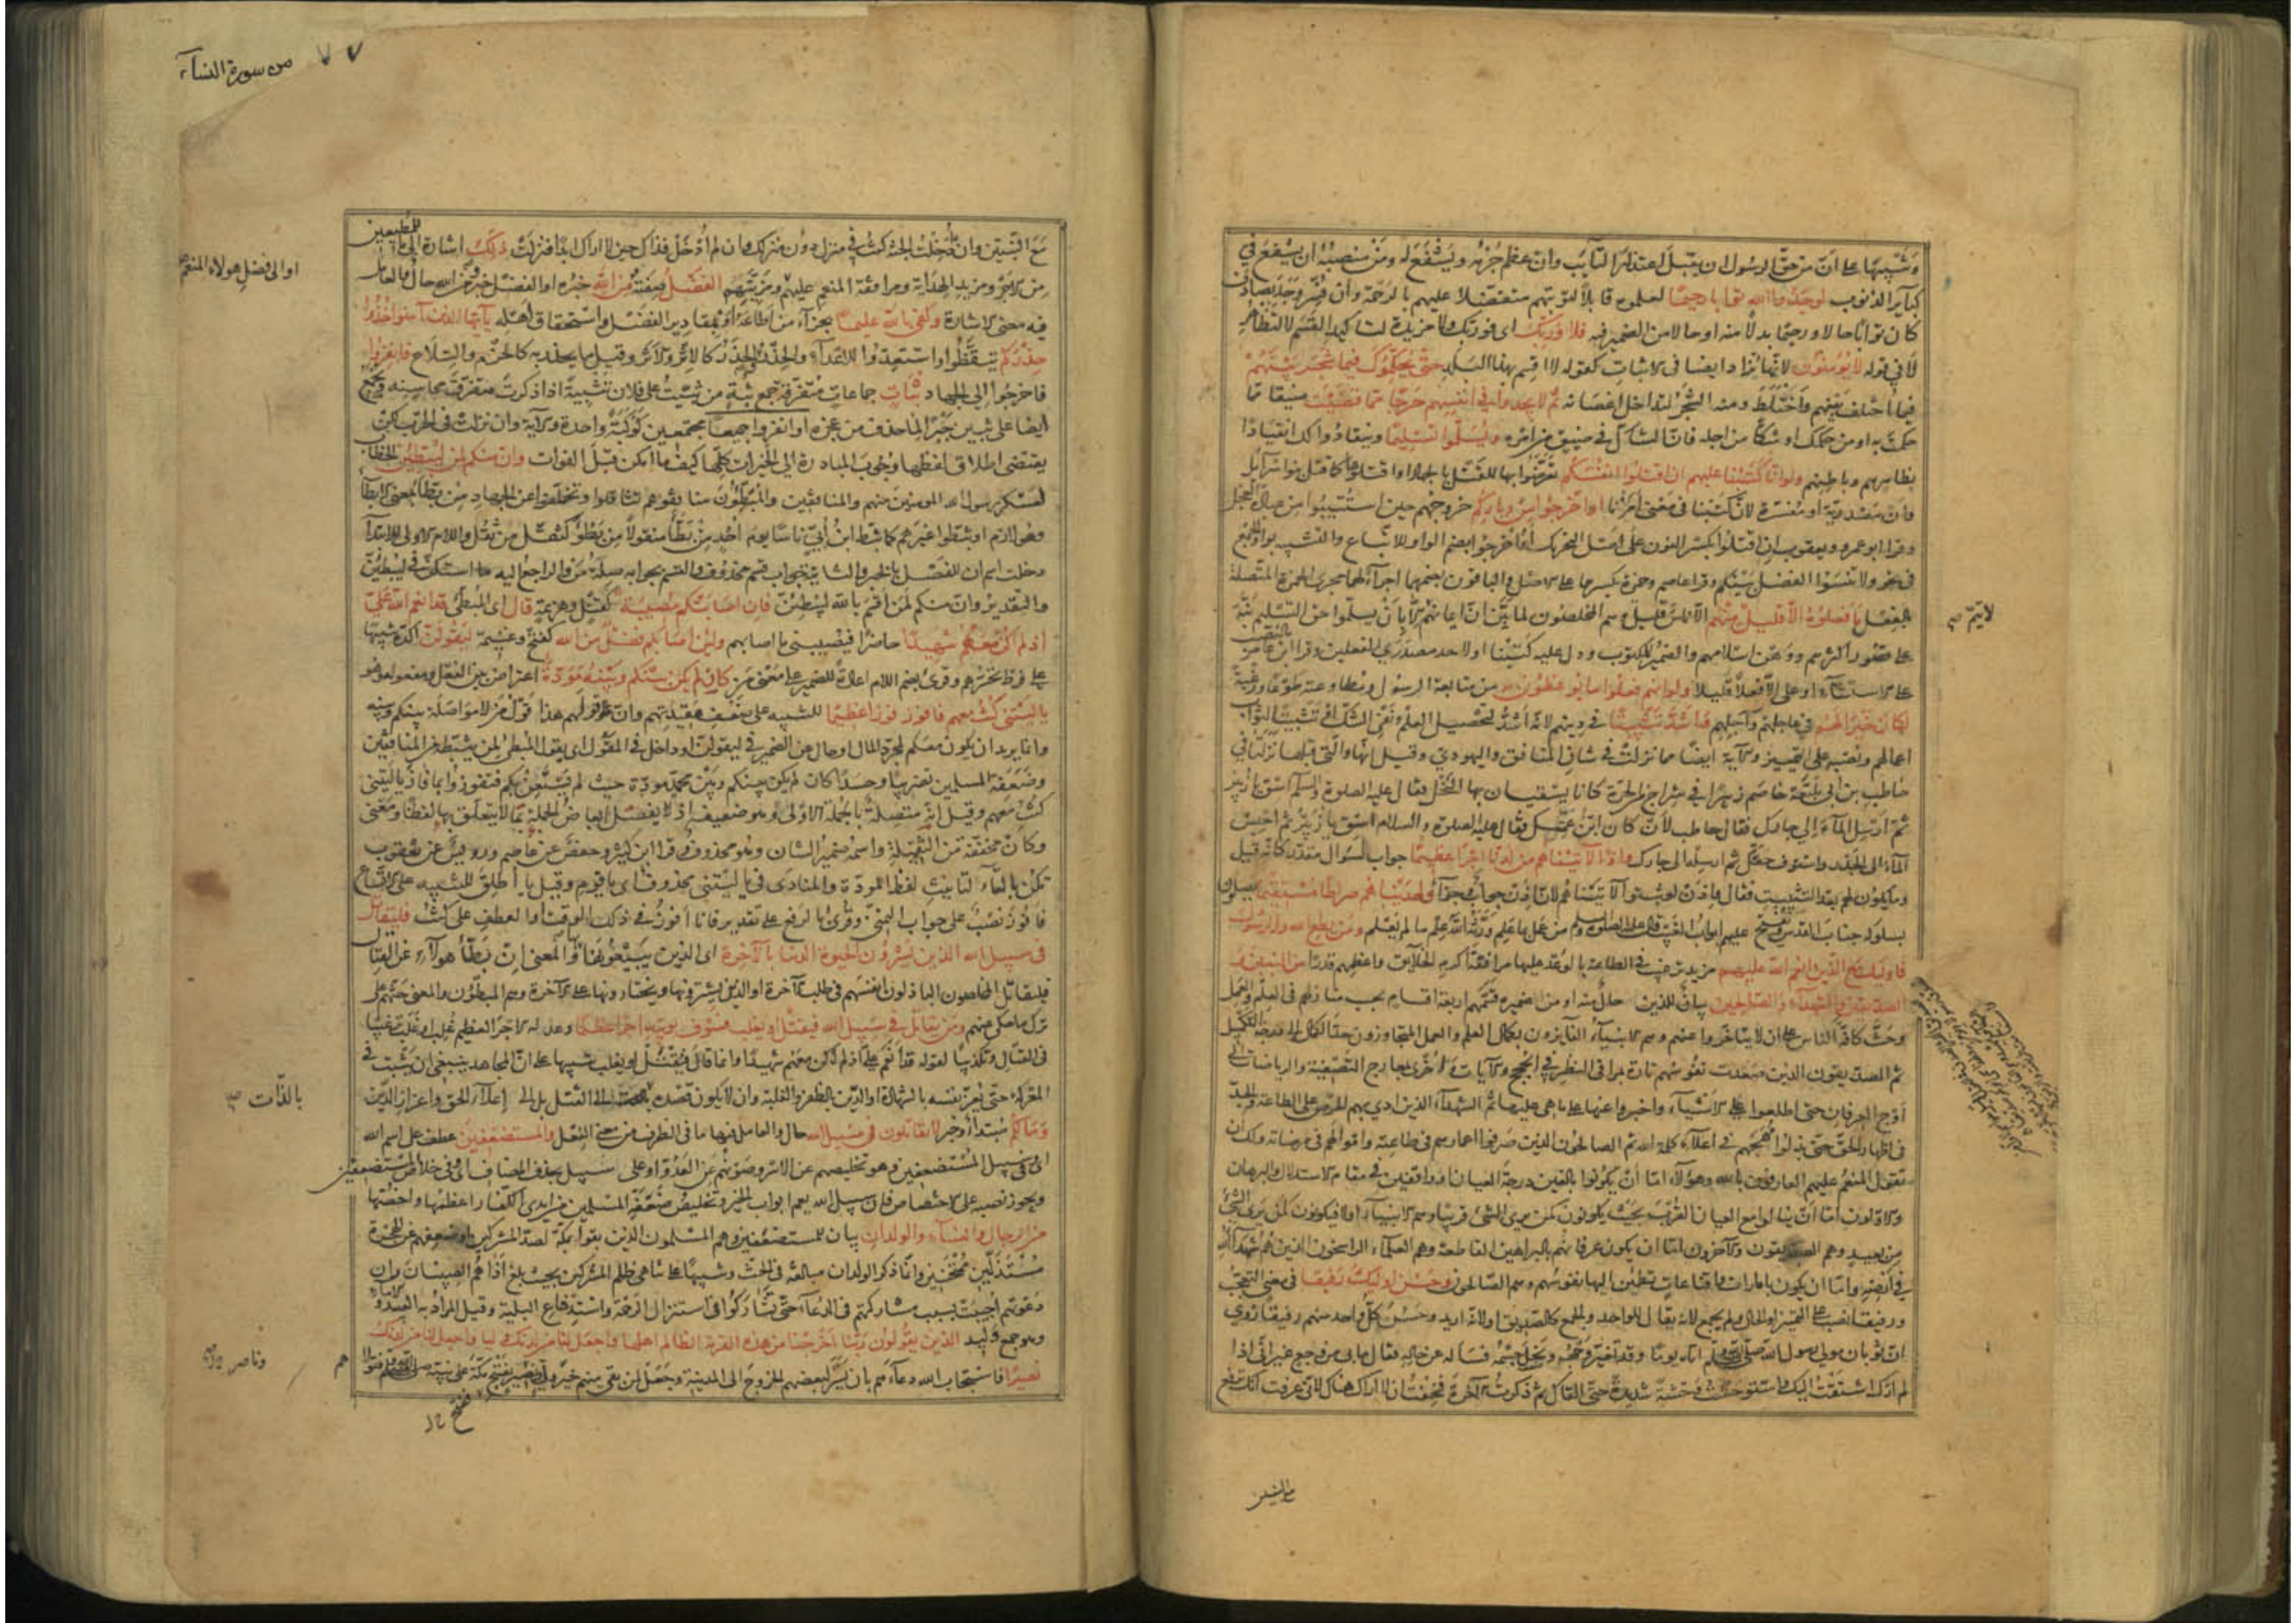 وتنبيها على ان من حق الرسول ان يقبل اعتذار التائب وان عظم جرمه ويشفع له ومن منصبه ان يشفع في
كبائر الذنوب لوجدوا الله توابا رحيما لعلموه قابلا لتوبتهم متفضلا عليهم بالرحمة وان فسر وجد بصادف
كان توابا حالا ورحيما بدلا منه او حالا من الضمير فيه فلا وربك اى فوربك ولا مزيدة لتاكيد القسم لا لتظاهر
لا في قوله لا يؤمنون لانها تزاد ايضا فى الاثبات كقوله لا اقسم بهذا البلد حتى يحكموك فيما شجر بينهم
فيما اختلف بينهم واختلط ومنه الشجر لتداخل اغصانه ثم لا يجدوا في انفسهم حرجا مما قضيت ضيقا مما
حكمت به او من حكمك او شكا من اجله فان الشاك في ضيق من امره ويسلموا تسليما وينقادوا لك انقيادا
بظاهرهم وباطنهم ولو انا كتبنا عليهم ان اقتلوا انفسكم تعرضوا بها للقتل بالجهاد او اقتلوها كما قتل بنو اسرائيل
وان مصدرية او مفسرة لان كتبنا في معنى امرنا او اخرجوا من دياركم خروجهم حين استتيبوا من عبادة العجل
وقرا ابو عمرو ويعقوب ان اقتلوا بكسر النون على اصل التحريك او اخرجوا بضم الواو للاتباع والتشبيه بواو الجمع
في نحو ولا تنسوا الفضل بينكم وقرا عاصم وحمزة بكسرهما على الاصل والباقون بضمهما اجراء لهما مجرى الهمزة المتصلة
بالفعل ما فعلوه الا قليل منهم الا ناس قليل وهم المخلصون لما بين ان ايمانهم لا يتم الا بان يسلموا حق التسليم نبه
على قصور اكثرهم ووهن اسلامهم والضمير للمكتوب ودل عليه كتبنا او لاحد مصدري الفعلين وقرا ابن عامر بالنصب
على الاستثناء او على الا فعلا قليلا ولو انهم فعلوا ما يوعظون به من متابعة الرسول ومطاوعته طوعا ورغبة
لكان خيرا لهم في عاجلهم وآجلهم واشد تثبيتا في دينهم لانه اشد لتحصيل العلم ونفي الشك او تثبيتا لثواب
اعمالهم ونصبه على التمييز والآية ايضا مما نزلت في شان المنافق واليهودي وقيل انها والتي قبلها نزلتا في
حاطب بن ابي بلتعة خاصم زبيرا في شراج من الحرة كانا يسقيان بها النخل فقال عليه الصلوة والسلام اسق يا زبير
ثم ارسل الماء الى جارك فقال حاطب لان كان ابن عمتك فقال عليه الصلوة والسلام اسق يا زبير ثم احبس
الماء الى الجدر واستوف حقك ثم ارسله الى جارك واذا لآتيناهم من لدنا اجرا عظيما جواب لسؤال مقدر كانه قيل
وما يكون لهم بعد التثبيت فقال واذن لو ثبتوا لآتيناهم لان اذن جواب وجزاء ولهديناهم صراطا مستقيما يصلون
بسلوكه جناب القدس ويفتح عليهم ابواب الغيب قال عليه الصلوة والسلام من عمل بما علم ورثه الله علم ما لم يعلم ومن يطع الله والرسول
فاولئك مع الذين انعم الله عليهم مزيد ترغيب في الطاعة بالوعد عليها مرافقة اكرم الخلائق واعظمهم قدرا من النبيين و
الصديقين والشهداء والصالحين بيان للذين حال منه او من ضميره قسمهم اربعة اقسام بحسب منازلهم في العلم والعمل
وحث كافة الناس على ان لا يتاخروا عنهم وهم الانبياء الفائزون بكمال العلم والعمل المتجاوزون حد الكمال الى درجة التكميل
ثم الصديقون الذين صعدت نفوسهم تارة بمراقى النظر في الحجج والآيات واخرى بمعارج التصفية والرياضات الى
اوج العرفان حتى اطلعوا على الاشياء واخبروا عنها على ما هى عليها ثم الشهداء الذين ادى بهم الحرص على الطاعة والجد
في اظهار الحق حتى بذلوا مهجهم في اعلاء كلمة الله ثم الصالحون الذين صرفوا اعمارهم في طاعته واموالهم في مرضاته ولك ان
تقول المنعم عليهم العارفون بالله وهؤلاء اما ان يكونوا بالغين درجة العيان او واقفين في مقام الاستدلال والبرهان
والاولون اما ان ينالوا مع العيان القرب بحيث يكونون كمن يرى الشئ قريبا وهم الانبياء او لا فيكونون كمن يرى الشئ
من بعيد وهم الصديقون والآخرون اما ان يكون عرفانهم بالبراهين القاطعة وهم العلماء الراسخون الذين هم شهداء الله
في ارضه واما ان يكون بامارات واقناعات تطمئن اليها نفوسهم وهم الصالحون وحسن اولئك رفيقا في معنى التعجب
ورفيقا نصب على التمييز او الحال ولم يجمع لانه يقال للواحد والجمع كالصديق او لانه اريد وحسن كل واحد منهم رفيقا روي
ان ثوبان مولى رسول الله صلى الله عليه وسلم اتاه يوما وقد تغير وجهه ونحل جسمه فساله عن حاله فقال ما بي من وجع غير اني اذا
لم ارك اشتقت اليك واستوحشت وحشة شديدة حتى القاك ثم ذكرت الآخرة فخفت ان لا اراك هناك لاني عرفت انك ترفع
لا يتم صح
مع النبيين
من سورة النساء
٧٧
مع النبيين وان ادخلت الجنة كنت في منزل دون منزلك وان لم ادخل فذاك حين لا اراك ابدا فنزلت ذلك اشارة الى ما للمطيعين
من الاجر ومزيد الهداية ومرافقة المنعم عليهم ومزيتهم الفضل صفته من الله خبره او الفضل خبر ومن الله حال والعامل
فيه معنى الاشارة وكفى بالله عليما بجزاء من اطاعه او بمقادير الفضل واستحقاق اهله يا ايها الذين آمنوا خذوا
حذركم تيقظوا واستعدوا للاعداء والحذر والحذر كالاثر والاثر وقيل ما يحذر به كالحزم والسلاح فانفروا
فاخرجوا الى الجهاد ثبات جماعات متفرقة جمع ثبة من ثبيت على فلان تثبية اذا ذكرت متفرقة محاسنه ويجمع
ايضا على ثبين جبرا لما حذف من عجزه او انفروا جميعا مجتمعين كوكبة واحدة والآية وان نزلت في الحرب لكن
يقتضى اطلاق لفظها وجوب المبادرة الى الخيرات كلها كيف ما امكن قبل الفوات وان منكم لمن ليبطئن الخطاب
لعسكر رسول الله المؤمنين منهم والمنافقين والمبطئون منافقوهم تثاقلوا وتخلفوا عن الجهاد من بطأ بمعنى ابطأ
وهو لازم او ثبطوا غيرهم كما ثبط ابن ابي ناسا يوم احد من بطأ منقولا من بطؤ كثقل من ثقل واللام الاولى للابتداء
دخلت اسم ان للفصل بالخبر والثانية جواب قسم محذوف والقسم بجوابه صلة من والراجع اليه ما استكن في ليبطئن
والتقدير وان منكم لمن اقسم بالله ليبطئن فان اصابتكم مصيبة كقتل وهزيمة قال اى المبطئ قد انعم الله علي
اذ لم اكن معهم شهيدا حاضرا فيصيبني ما اصابهم ولئن اصابكم فضل من الله كفتح وغنيمة ليقولن اكده تنبيها
على فرط تحسرهم وقرئ بضم اللام اعادة للضمير على معنى من كان لم يكن بينكم وبينه مودة اعتراض بين الفعل ومفعوله وهو
يا ليتني كنت معهم فافوز فوزا عظيما للتنبيه على ضعف عقيدتهم وان قولهم هذا قول من لا مواصلة بينكم وبينه
وانما يريد ان يكون معكم لمجرد المال او حال عن الضمير في ليقولن او داخل في المقول اى يقول المبطئ لمن يثبطه من المنافقين
وضعفة المسلمين تضريبا وحسدا كان لم يكن بينكم وبين محمد مودة حيث لم يستعن بكم فتفوزوا بما فاز يا ليتني
كنت معهم وقيل انه متصلة بالجملة الاولى وهو ضعيف اذ لا يفصل ابعاض الجملة بما لا يتعلق بها لفظا ومعنى
وكان مخففة من الثقيلة واسمه ضمير الشان وهو محذوف وقرا ابن كثير وحفص عن عاصم ورويس عن يعقوب
تكن بالتاء لتانيث لفظ المودة والمنادى في يا ليتني محذوف اى يا قوم وقيل يا اطلق للتنبيه على الاتساع
فافوز نصب على جواب التمني وقرئ بالرفع على تقدير فانا افوز في ذلك الوقت او العطف على كنت فليقاتل
في سبيل الله الذين يشرون الحيوة الدنيا بالآخرة اى الذين يبيعونها والمعنى ان بطأ هولاء عن القتال
فليقاتل المخلصون الباذلون انفسهم في طلب الآخرة او الذين يشترونها ويختارونها على الآخرة وهم المبطؤن والمعنى حثهم على
ترك ما حكى عنهم ومن يقاتل في سبيل الله فيقتل او يغلب فسوف نؤتيه اجرا عظيما وعد له الاجر العظيم غلب او غلب ترغيبا
في القتال وتكذيبا لقوله قد انعم علي اذ لم اكن معهم شهيدا وانما قال فيقتل او يغلب تنبيها على ان المجاهد ينبغي ان يثبت في
المعركة حتى يعز نفسه بالشهادة او الدين بالظفر والغلبة وان لا يكون قصده الى القتل بل الى اعلاء الحق واعزاز الدين
وما لكم مبتدأ وخبر لا تقاتلون في سبيل الله حال والعامل فيها ما في الظرف من معنى الفعل والمستضعفين عطف على اسم الله
اى وفي سبيل المستضعفين وهو تخليصهم عن الاسر وصونهم عن العدو او على سبيل بحذف المضاف اى وفي خلاص المستضعفين
ويجوز نصبه على الاختصاص فان سبيل الله يعم ابواب الخير وتخليص ضعفة المسلمين من ايدى الكفار اعظمها واخصها
من الرجال والنساء والولدان بيان للمستضعفين وهم المسلمون الذين بقوا بمكة لصد المشركين او ضعفهم عن الهجرة
مستذلين ممتحنين وانما ذكر الولدان مبالغة في الحث وتنبيها على تناهى ظلم المشركين بحيث بلغ اذاهم الصبيان وان
دعوتهم اجيبت بسبب مشاركتهم في الدعاء حتى تشاركوا في استنزال الرحمة واستدفاع البلية وقيل المراد به العبيد والاماء
وهو جمع وليد الذين يقولون ربنا اخرجنا من هذه القرية الظالم اهلها واجعل لنا من لدنك وليا واجعل لنا من لدنك
نصيرا فاستجاب الله دعاءهم بان يسر لبعضهم الخروج الى المدينة وجعل لمن بقى منهم خير ولي
او الى فضل هولاء المنعم
بالذات صح
وناصر صح
فتح